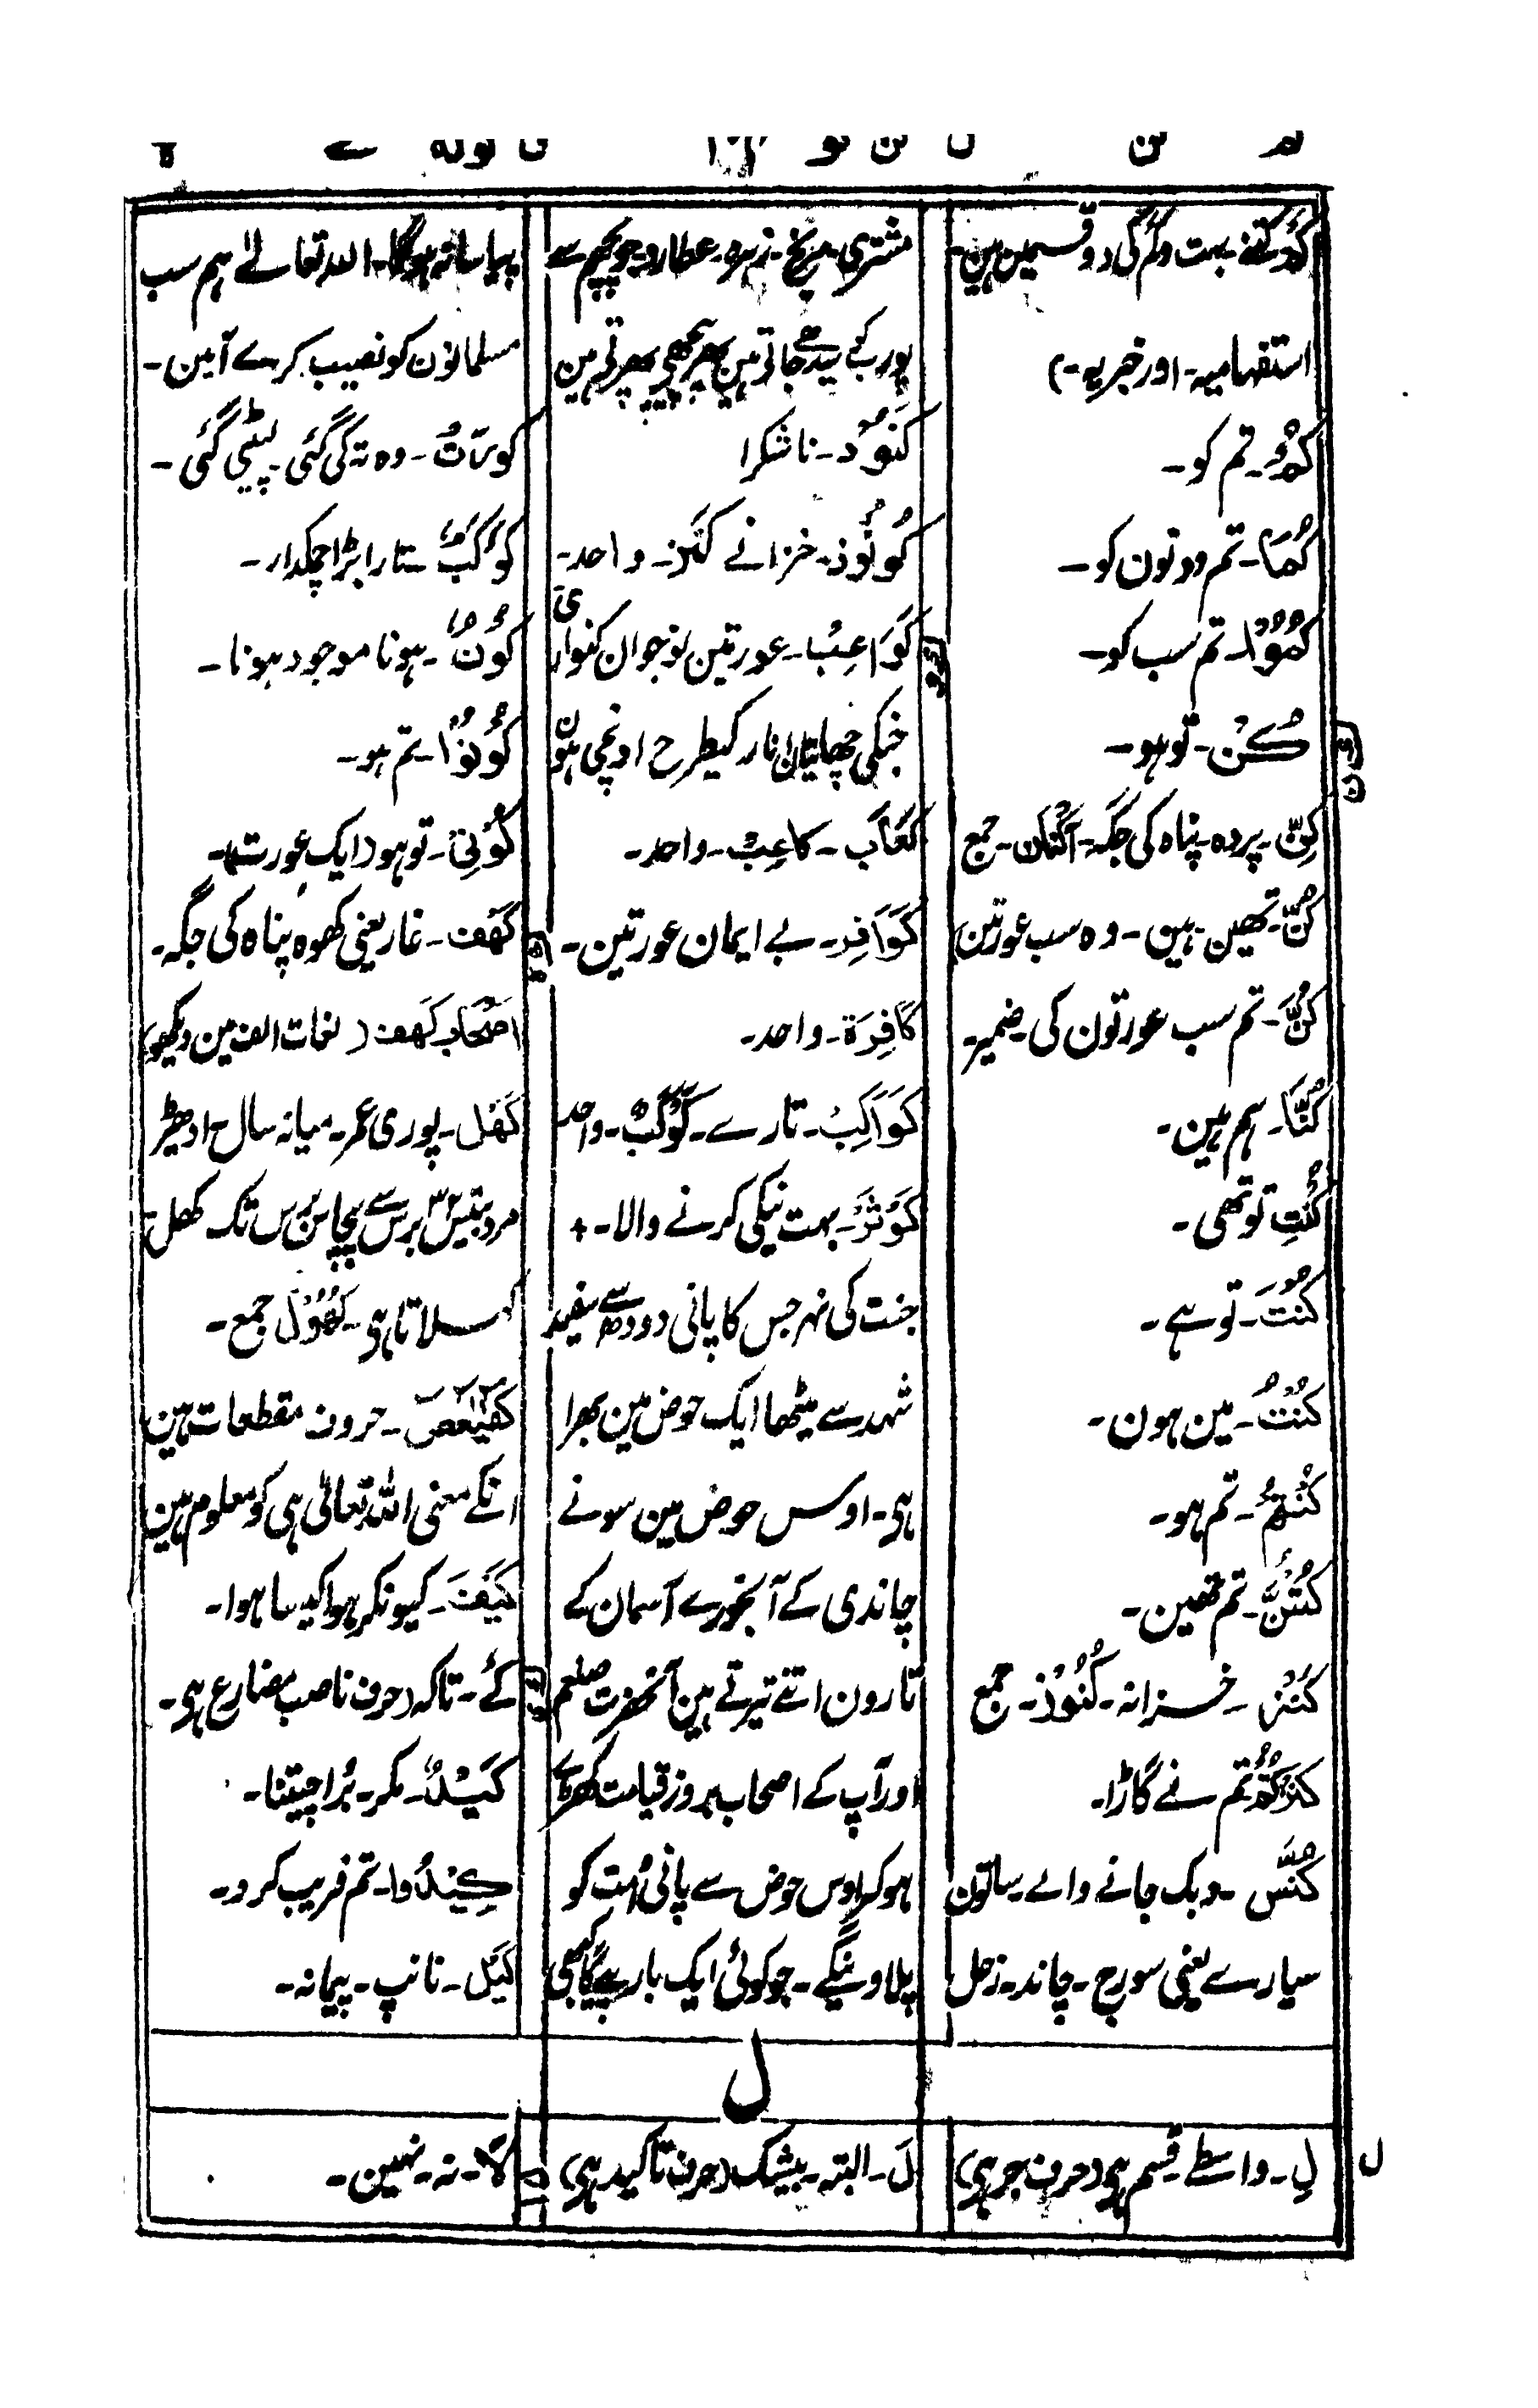 كَمْ۔ کتنے بہت (کم کی دو قسمین ہین۔
استفہامیہ۔ اور خبریہ۔)
كُمْ۔ تم کو۔
كُمَا۔ تم دونون کو۔
كُمُوْا۔ تم سب کو۔
كُنْ۔ تو ہو۔
كِنّ۔ پردہ۔ پناہ کی جگہ۔ اَكْنَان۔ جمع
كُنَّ۔ تھین۔ ہین۔ وہ سب عورتین
كُنَّ۔ تم سب عورتون کی۔ ضمیر۔
كُنَّا۔ ہم ہین۔
كُنْتِ تو تھی۔
كُنْتَ۔ تو ہے۔
كُنْتُ۔ مین ہون۔
كُنْتُمْ۔ تم ہو۔
كُنْتُنَّ۔ تم تھین۔
كَنْز۔ خزانہ۔ كُنُوْز۔ جمع
كَنَزْتُمْ تم نے گاڑا۔
كُنَّس۔ دبک جانے والے۔ ساتون
سیارے یعنی سورج۔ چاند۔ زحل
مشتری۔ مریخ۔ زہرہ۔ عطارد۔ جو پچھم سے
پورب کے سیدھے جاتے ہین پھر پیچھے پھرتے ہین
كَنُوْد۔ ناشکرا
كُنُوْز۔ خزانے كَنْز۔ واحد۔
كَوَاعِبُ۔ عورتین نوجوان کنواری
جنکی چھاتیان انار کیطرح اونچی ہون
كِعَاب۔ كَاعِبْ۔ واحد۔
كَوَافِر۔ بے ایمان عورتین۔
كَافِرَة۔ واحد۔
كَوَاكِبْ۔ تارے۔ كَوْكَبْ۔ واحد
كَوْثَرْ۔ بہت نیکی کرنے والا۔ +
جنت کی نہر جس کا پانی دودھ سے سفید
شہد سے میٹھا ایک حوض مین بھرا
ہی۔ اوس حوض مین سونے
چاندی کے آبخورے آسمان کے
تارون اتنے تیرتے ہین آنحضرت صلعم
اور آپ کے اصحاب بروز قیامت کھڑے
ہو کر اوس حوض سے پانی اُمت کو
پلاوینگے۔ جو کوئی ایک بار پیے گا کبھی
پیاسا نہ ہوگا۔ اللہ تعالےٰ ہم سب
مسلمانون کو نصیب کرے آمین۔
كُوِّرَتْ۔ وہ تہ کی گئی۔ لپٹی گئی۔
كَوْكَبْ ستارا بڑا چمکدار۔
كَوْنٌ۔ ہونا موجود ہونا۔
كُوْنُوْا۔ تم ہو۔
كُوْنِیْ۔ تو ہو (ایک عورت)۔
كَهْف۔ غار یعنی کھوہ پناہ کی جگہ۔
اَصْحَاب كَهْف (لغات الف مین دیکھو)
كَهْل۔ پوری عمر۔ میانہ سال ادھیڑ
مرد بتیس برس سے پچاس برس تک کھل
کہلاتا ہی۔ كُهُوْل جمع۔
كٓهٰيٰعٓصٓ۔ حروف مقطعات ہین
انکے معنی اللہ تعالیٰ ہی کو معلوم ہین
كَيْفَ۔ کیونکر ہوا کیسا ہوا۔
كَےْ۔ تاکہ (حرف ناصب مضارع ہی۔
كَيْدٌ۔ مکر۔ بُرا چیتنا۔
كِيْدُوا۔ تم فریب کرو۔
كَيْل۔ ناپ۔ پیمانہ۔
ل
ل
لِ۔ واسطے قسم ہی (حرف جر ہی)
لَ۔ البتہ۔ بیشک (حرف تاکید ہی)
لَا۔ نہ۔ نہین۔